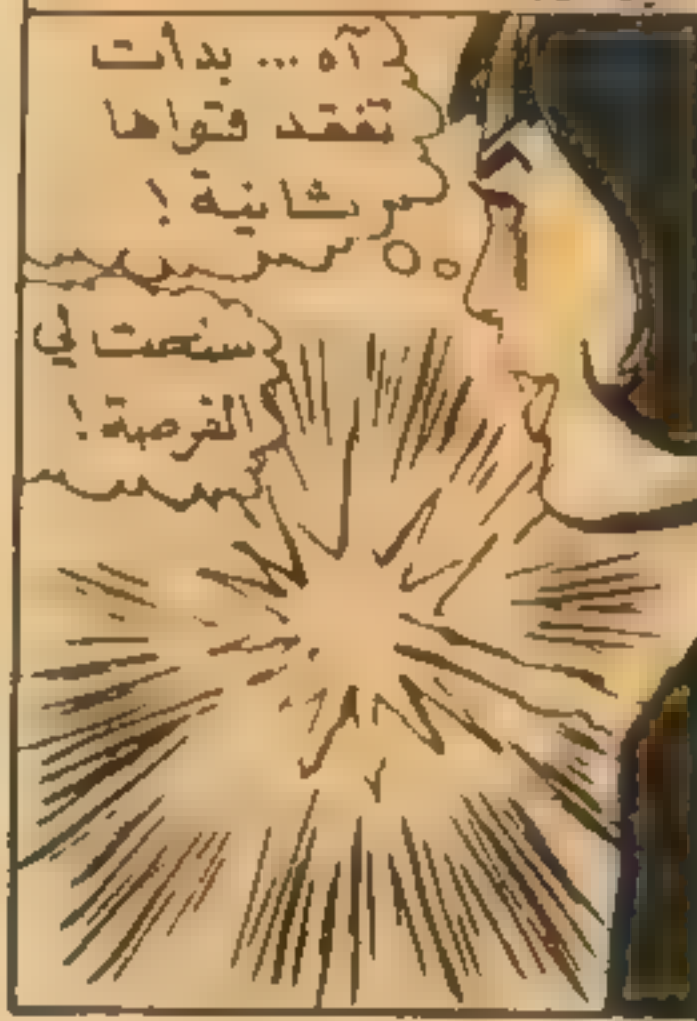 آه ... بدأت
تفقد قواها
ثانية !
سنحت لي
الفرصة !